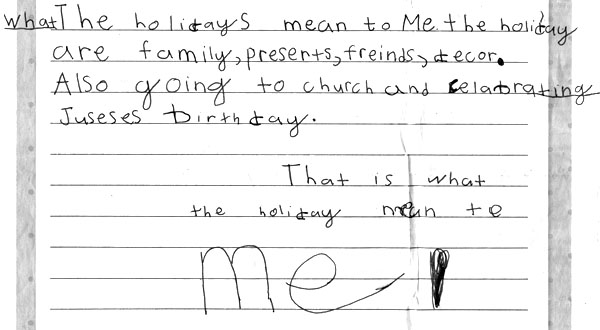 what The holidays mean to Me the holiday
are family, presents, freinds, decor.
Also going to church and celabrating
Juseses birthday.
That is what
the holiday mean to
me!